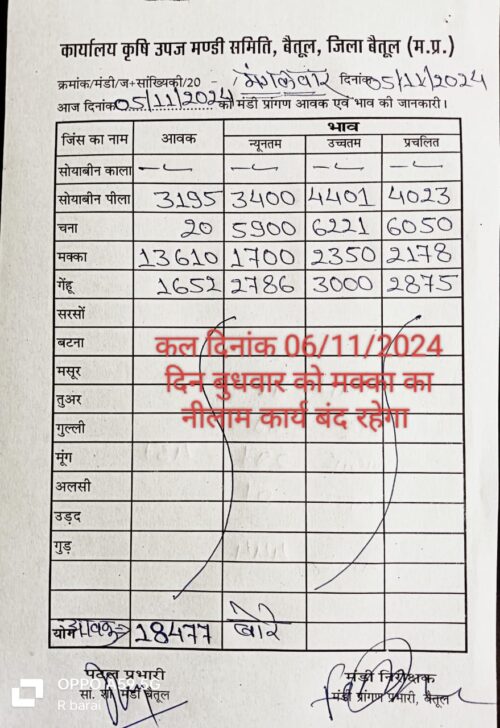 कार्यालय कृषि उपज मण्डी समिति, बैतूल, जिला बैतूल (म.प्र.)
क्रमांक/मंडी/ज+सांख्यिकी/20 - मंगलवार दिनांक 05/11/2024
आज दिनांक 05/11/2024 को मंडी प्रांगण आवक एवं भाव की जानकारी।
जिंस का नाम आवक भाव
न्यूनतम उच्चतम प्रचलित
सोयाबीन काला - - - -
सोयाबीन पीला 3195 3400 4401 4023
चना 20 5900 6221 6050
मक्का 13610 1700 2350 2178
गेंहू 1652 2786 3000 2875
सरसों
बटना
मसूर
तुअर
गुल्ली
मूंग
अलसी
उड़द
गुड़
कल दिनांक 06/11/2024
दिन बुधवार को मक्का का
नीलाम कार्य बंद रहेगा
योग आवक 18477 बोरे
पटल प्रभारी मंडी निरीक्षक
सां. शा. मंडी बैतूल मंडी प्रांगण प्रभारी, बैतूल
OPPO A59 5G
R barai